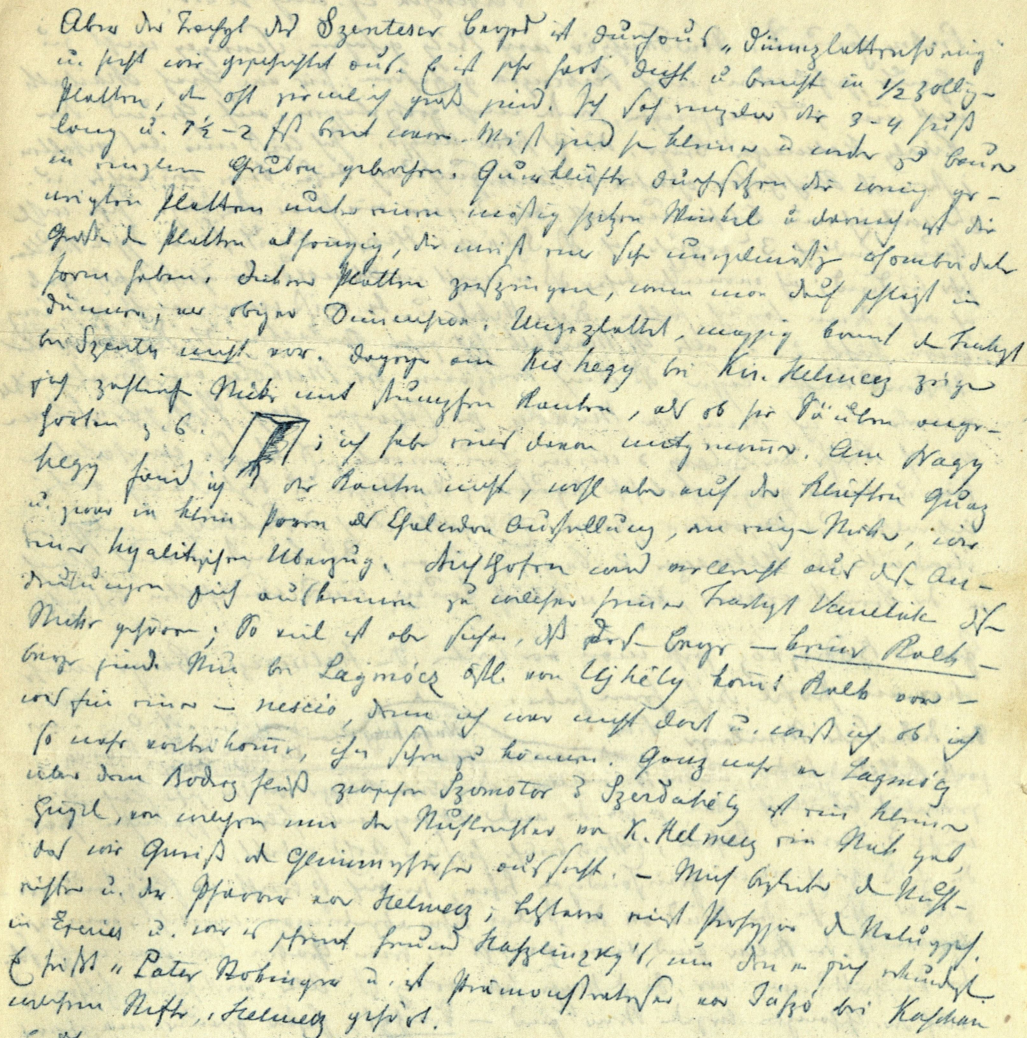 Aber der Trachyt des Szenteser Berges ist durchaus „dünnplattenförmig“
u. sieht wie geschichtet aus. Er ist sehr hart, dicht u bricht in 1/2 zollig-
Platten, die oft ziemlich groß sind. Ich sah einzelne die 3-4 Fuß
lang u. 1½-2 Fß breit waren. Meist sind sie kleiner u werden zu Bauen
in einzelnen Gruben gebrochen. Querklüfte durchsetzen die wenig ge-
neigten Platten unter einem mäßig spitzen Winkel u darnach ist die
Größe der Platten abhängig, die meist eine sehr unregelmäßig rhomboidale
Form haben. Dickere Platten zerspringen, wenn man drauf schlagt in
dünnere, obiger Dimension. Ungeplattet, massig kommt der Trachyt
bei Szentes nicht vor. Dagegen am Kis hegy bei Kir. Helmecz zeigen
sich Stücke mit stumpfen Kanten, als ob sie Säulen ange-
hörten z.B. ; ich habe eines davon mitgenommen. Am Nagy
hegy fand ich die Kanten nicht, wohl aber auf den Klüften Quarz
u. zwar in klein Poren als Chalcedon Ausfüllung, an einigen Stücken, wie
einen hyalitischen Überzug. Richthofen wird vielleicht aus diesen An-
deutungen sich auskennen zu welcher seiner Trachyt Varietäten diese
Stücke gehören; So viel ist aber sicher, daß diese Berge – keine Kalk-
berge sind. Nur bei Lagmócz östl. von Ujhély kommt Kalk vor –
was für einer – nescio, denn ich war nicht dort u. weiß nicht ob ich
so nahe vorbeikomme, ihn sehen zu können. Ganz nahe an Lagmócz
über dem Bodrog Fluß zwischen Szomotor & Szerdahély ist ein kleiner
Hügel, von welchem mir der Stuhlrichter von K. Helmecz ein Stück gab,
das wie Gneiß oder Glimmerschiefer aussieht. – Mich begleitete der Stuhl-
richter u. der Pfarrer von Helmecz; letzterer einst Professor der Naturgesch.
in Eperies u. wie es scheint Freund Hazslinszky's, um den er sich erkundigt.
Er heißt „Pater Stobinger u. ist Prämonstratenser von Jászó bei Kaschau
welchem Stifte, Helmecz gehört.